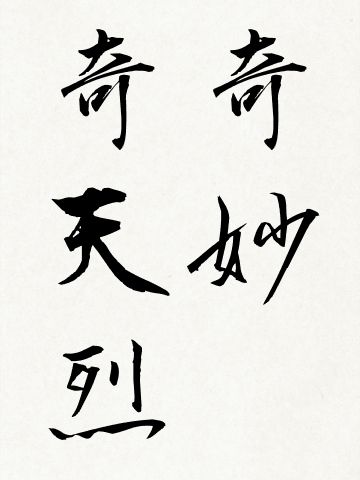 奇妙
奇天烈